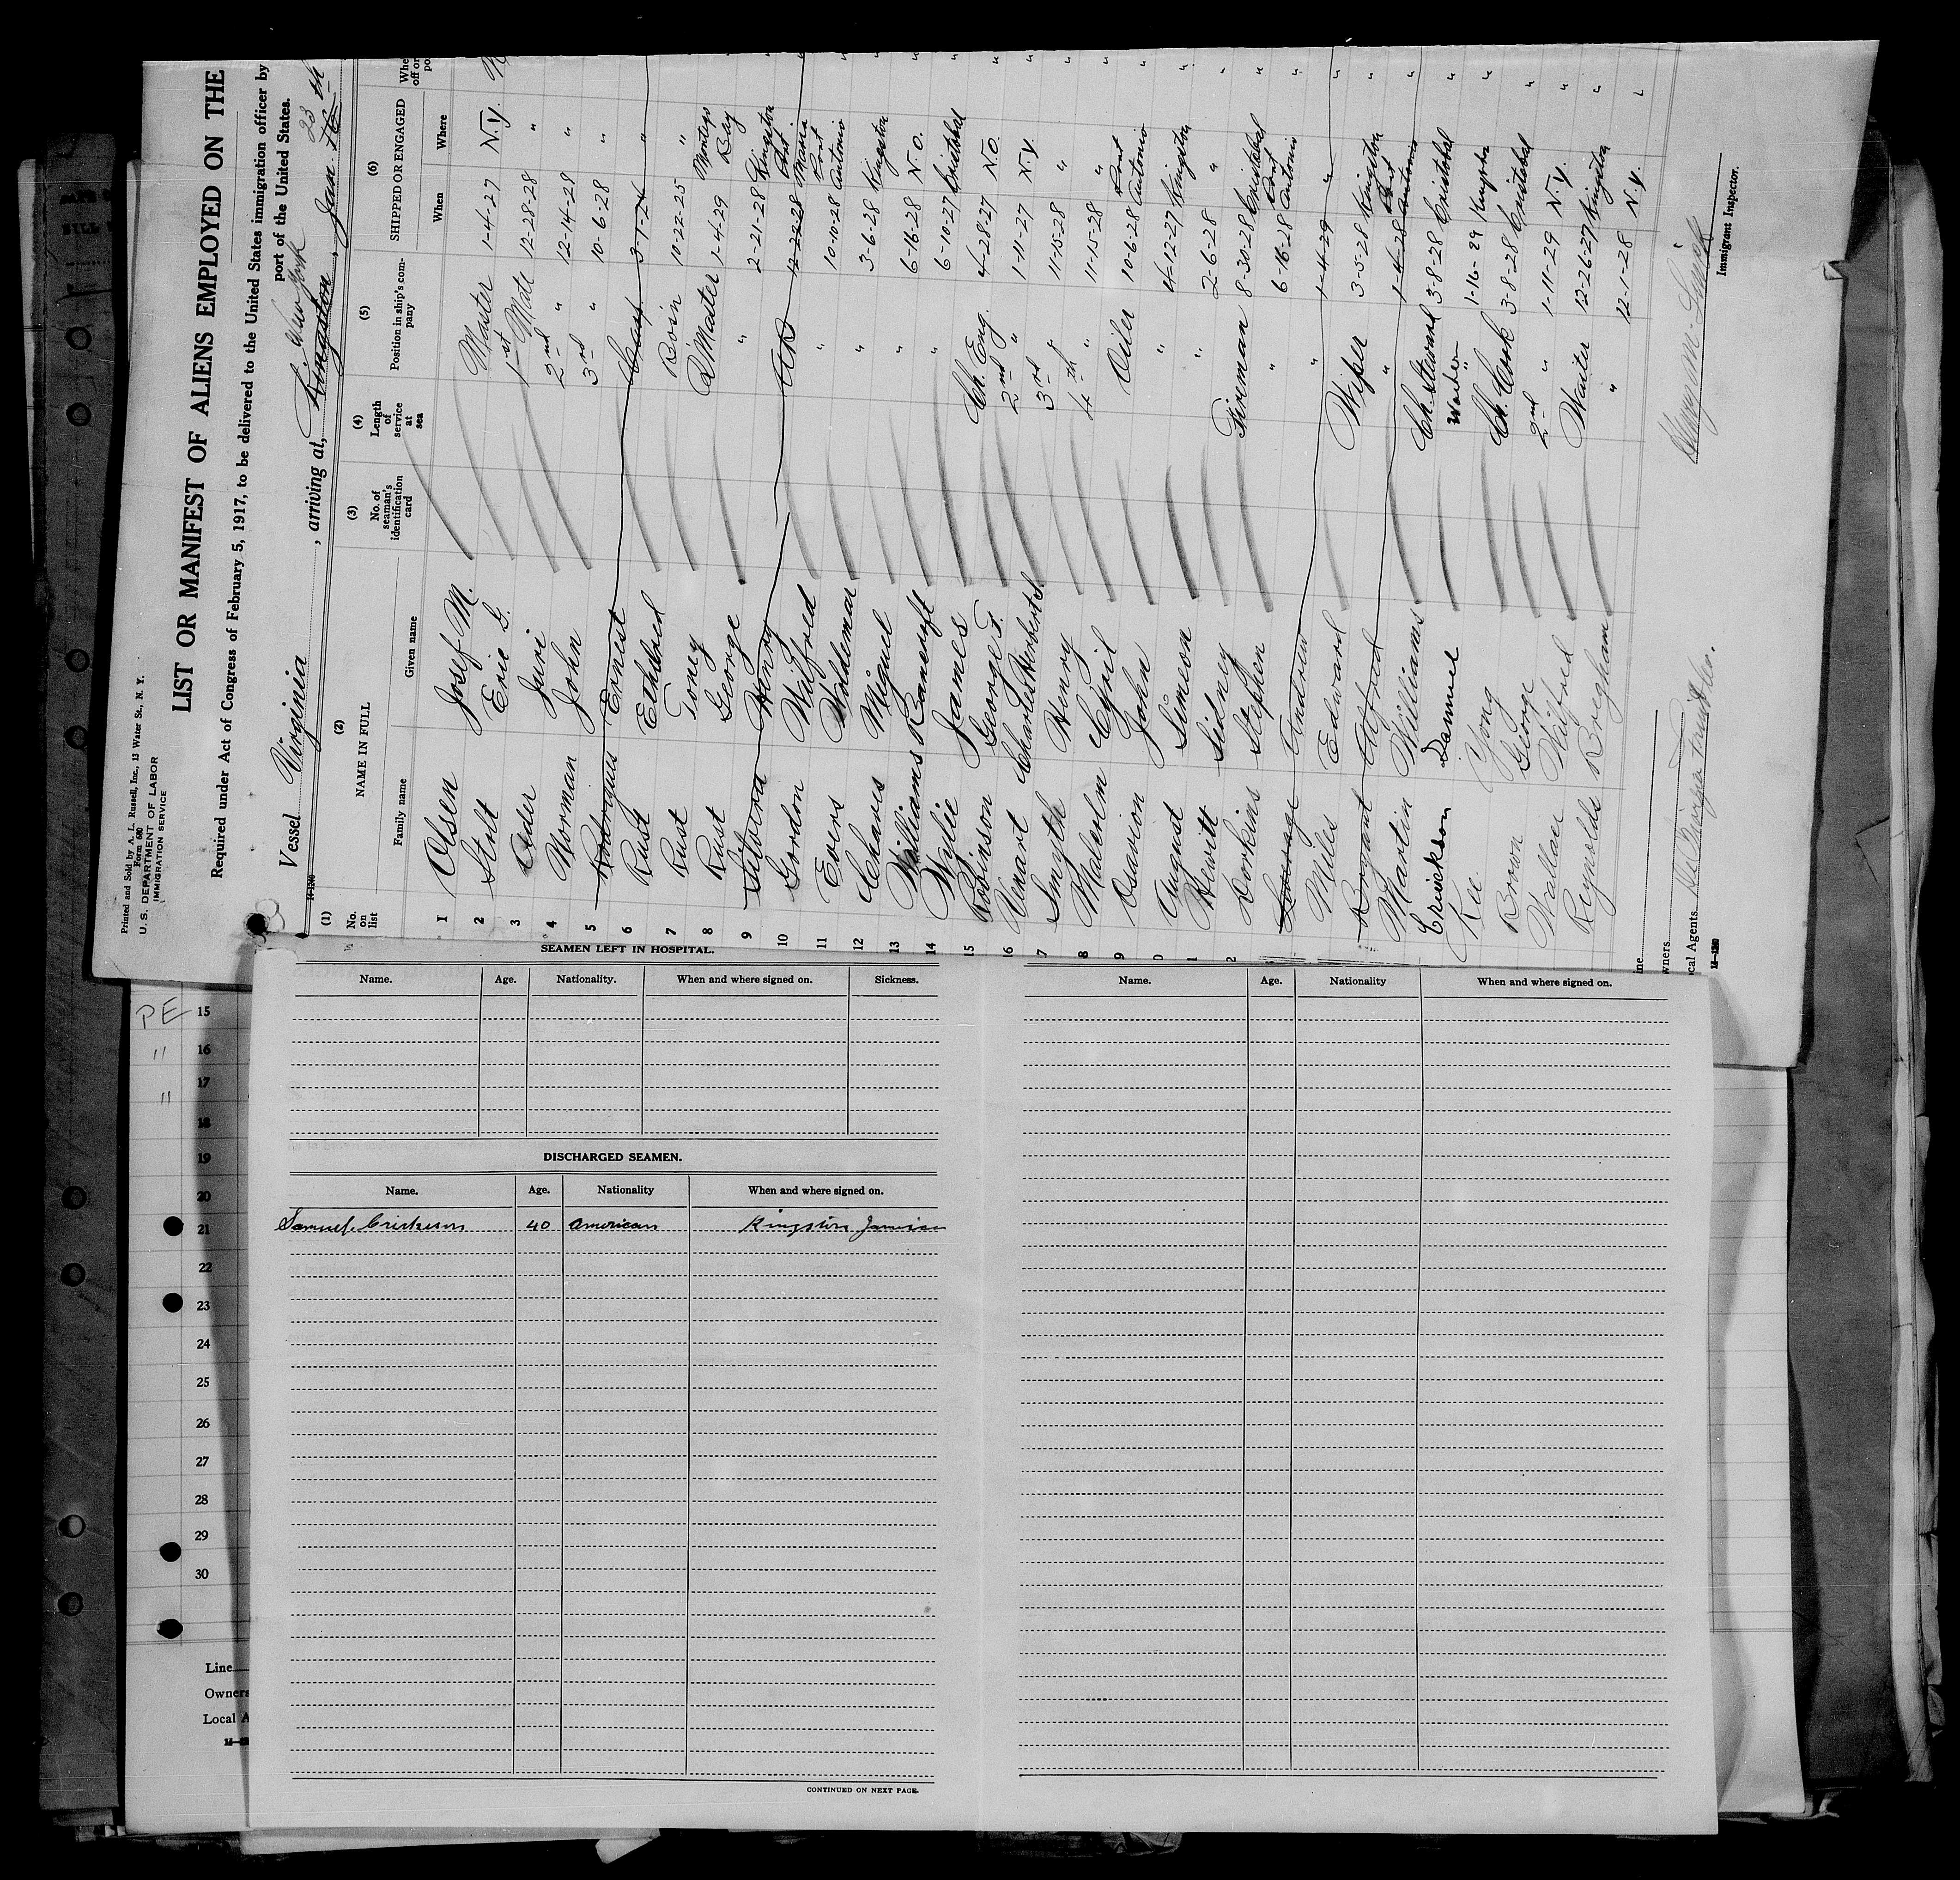 Printed and Sold by A. L. Russell, Inc., 13 Water St., N. Y.
Form 680
U. S. DEPARTMENT OF LABOR
IMMIGRATION SERVICE
LIST OR MANIFEST OF ALIENS EMPLOYED ON THE
Required under Act of Congress of February 5, 1917, to be delivered to the United States immigration officer by
port of the United States.
Vessel Virginia, arriving at, Kingston New York, Jan. 23 th
(1) (2) (3) (4) (5) (6)
No. on list NAME IN FULL No. of seaman's identification card Length of service at sea Position in ship's company SHIPPED OR ENGAGED
Family name Given name When Where
1 Olsen Josef M. Master 1-4-27 N.Y.
2 Stolt Eric G. 1st Mate 12-28-28 "
3 Ader Juri 2nd " 12-14-28 "
4 Norman John 3rd " 10-6-28 "
5 Rodriguis Ernest 3-1-24 "
6 Rust Ethelred Bosin 10-22-25 "
7 Rust Toney Q Master 1-4-29 Montego Bay
8 Rust George " 2-21-28 Kingston
9 Silvera Henry AB 12-22-28 Port Maria
10 Gordon Wilfred " 10-10-28 Port Antonio
11 Evers Woldemar " 3-6-28 Kingston
12 Chaves Miguel " 6-16-28 N.O.
13 Williams Bancroft " 6-10-27 Cristobal
14 Wylie James Ch. Eng. 4-28-27 N.O.
15 Robinson George F. 2nd " 1-11-27 N.Y.
16 Venart Charles Herbert S. 3rd " 11-15-28 "
7 Smyth Henry 4th " 11-15-28 "
8 Malcolm Cyril Oiler 10-6-28 Port Antonio
9 Osavion John " 4-12-27 Kingston
0 August Simeon " 2-6-28 "
1 Hewitt Sidney Fireman 8-30-28 Cristobal
2 Dorkins Stephen " 6-16-28 Port Antonio
Andrew " 1-4-29 "
Miles Edward Wiper 3-5-28 Kingston
Bryant Alfred " 1-4-28 Port Antonio
Martin Williams Ch. Steward 3-8-28 Cristobal
Erickson Samuel 1-16-29 Kingston
Kee Yong Ch. Cook 3-8-28 Cristobal
Brown George 2nd " 1-11-29 N.Y.
Wallace Wilfred Waiter 12-26-27 Kingston
Reynolds Bregham " 12-1-28 N.Y.
Immigrant Inspector.
wners
cal Agents
SEAMEN LEFT IN HOSPITAL.
Name. Age. Nationality. When and where signed on. Sickness.
DISCHARGED SEAMEN.
Name. Age. Nationality When and where signed on.
Samuel Erickson 40 American Kingston Jamaica
CONTINUED ON NEXT PAGE.
Name. Age. Nationality When and where signed on.
PE 15
" 16
17
" 18
19
20
21
22
23
24
25
26
27
28
29
30
Line
Owners
Local A